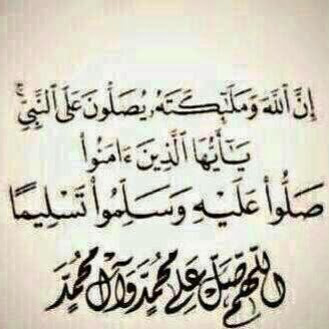 إِنَّ ٱللَّهَ وَمَلَٰٓئِكَتَهُۥ يُصَلُّونَ عَلَى ٱلنَّبِيِّۚ
يَٰٓأَيُّهَا ٱلَّذِينَ ءَامَنُوا۟
صَلُّوا۟ عَلَيْهِ وَسَلِّمُوا۟ تَسْلِيمًا
اللّهم صَلِّ عَلى محمَّدٍ وَآلِ محمَّدٍ